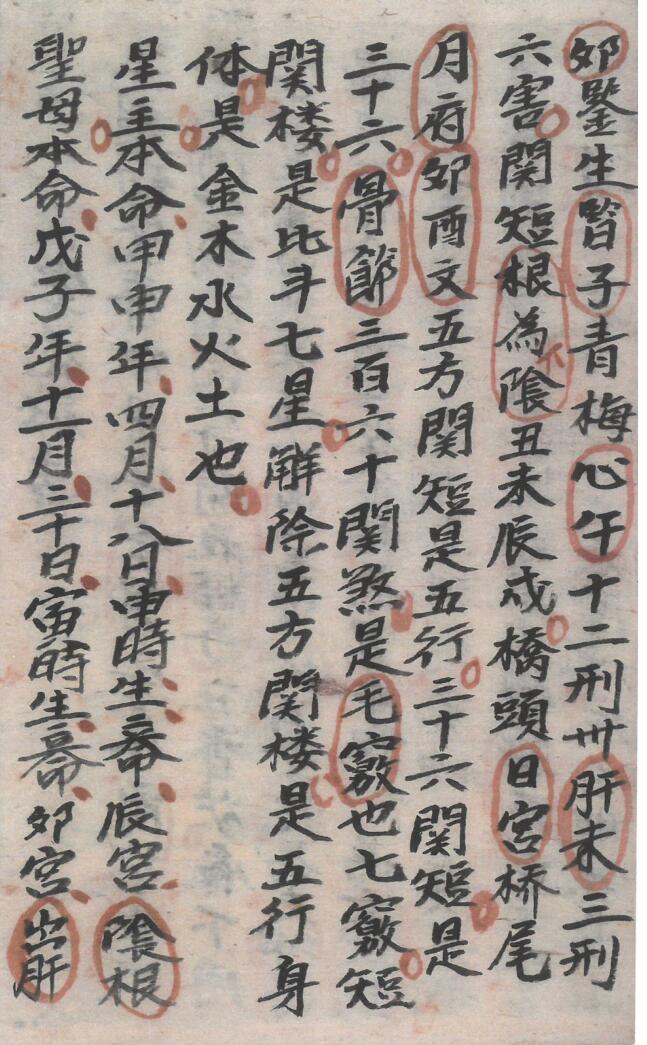 夘鑒生瞖子青梅心午十二刑卅肝未三刑
六害関短根為陰丑未辰戍橋頭日宮桥尾
月府夘酉文五方関短是五行三十六関短是
三十六骨節三百六十関煞是毛竅也七竅短
関楼是比斗七星解除五方関楼是五行身
体是金木水火土也
星主本命甲申年四月十八日申時生命辰宮陰根
聖母本命戊子年十一月三十日寅時生命夘宮出肝